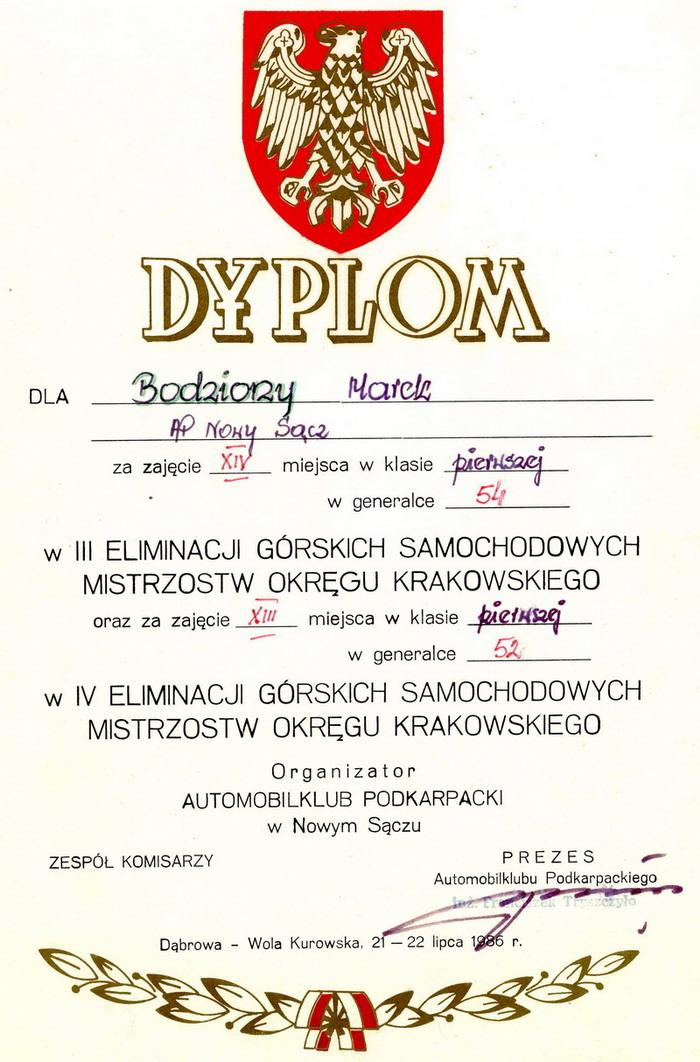 DYPLOM
DLA Bodziony Marek
AP Nowy Sącz
za zajęcie XIV miejsca w klasie pierwszej
w generalce 54
w III ELIMINACJI GÓRSKICH SAMOCHODOWYCH
MISTRZOSTW OKRĘGU KRAKOWSKIEGO
oraz za zajęcie XIII miejsca w klasie pierwszej
w generalce 52
w IV ELIMINACJI GÓRSKICH SAMOCHODOWYCH
MISTRZOSTW OKRĘGU KRAKOWSKIEGO
Organizator
AUTOMOBILKLUB PODKARPACKI
w Nowym Sączu
ZESPÓŁ KOMISARZY
PREZES
Automobilklubu Podkarpackiego
inż. Franciszek
Dąbrowa - Wola Kurowska, 21 — 22 lipca 1986 r.